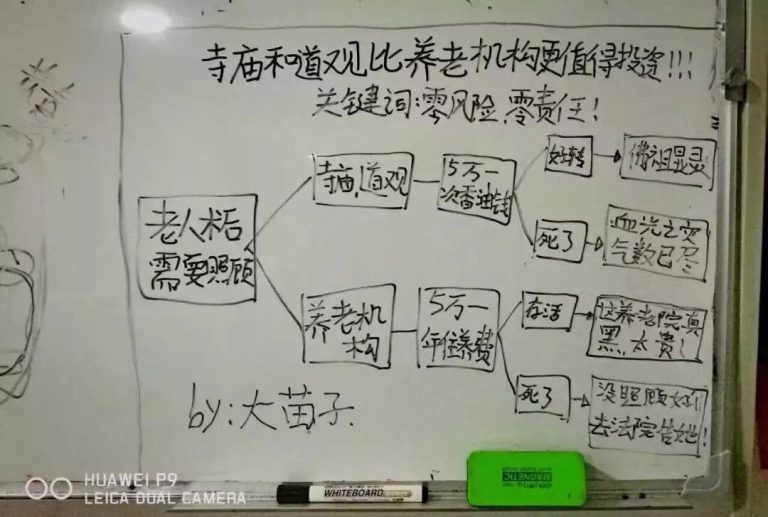 寺庙和道观比养老机构更值得投资!!!
关键词:零风险,零责任!
老人术后
需要照顾
寺庙,道观
5万一
次香油钱
好转
佛祖显灵
死了
血光之灾
气数已尽
养老机
构
5万一
年住养费
存活
这养老院真
黑,太贵!
死了
没照顾好!
去法院告她!
by:大苗子.
HUAWEI P9
LEICA DUAL CAMERA
WHITEBOARD
MAGNETIC